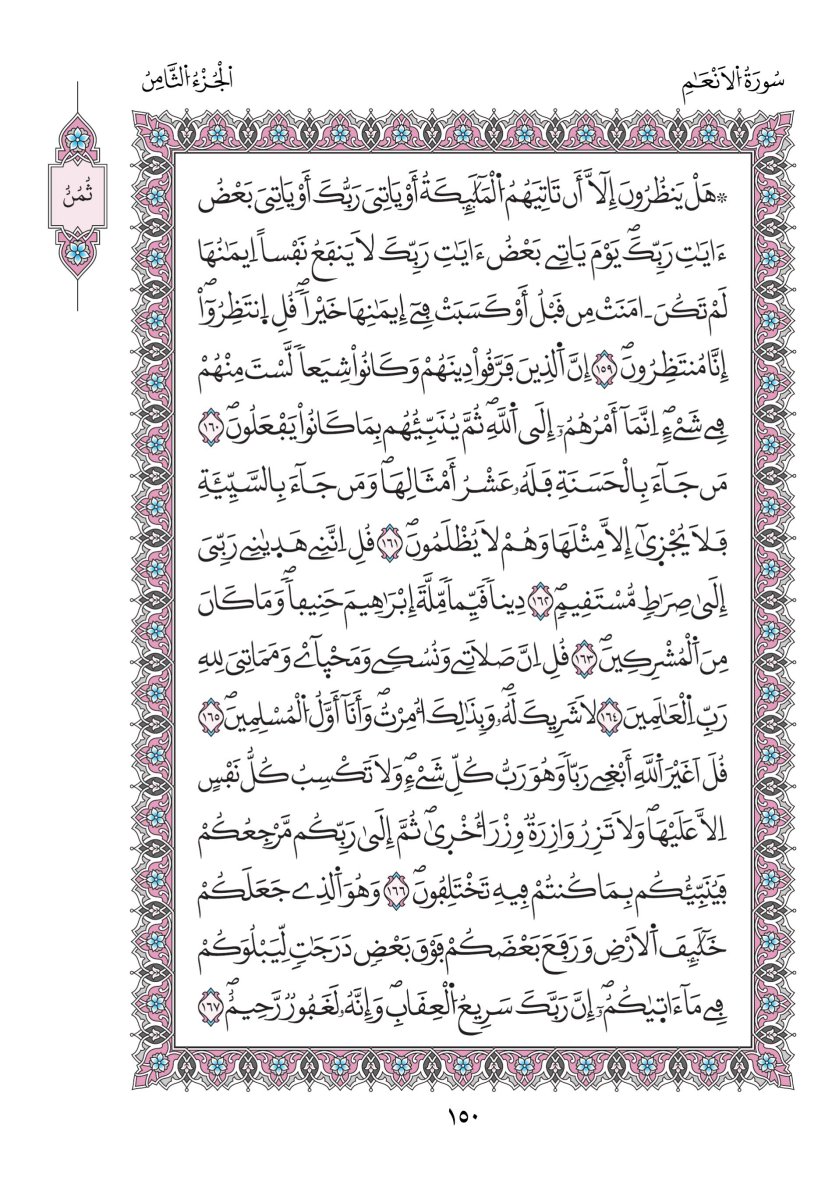 سُورَةُ اُ۬لَانْعَٰمِ
اُ۬لْجُزْءُ اُ۬لثَّامِنُ
ثُمُنُ
۞هَلْ يَنظُرُونَ إِلَّآ أَن تَاتِيَهُمُ اُ۬لْمَلَٰٓئِكَةُ أَوْ يَاتِيَ رَبُّكَ أَوْ يَاتِيَ بَعْضُ
ءَايَٰتِ رَبِّكَۖ يَوْمَ يَاتِے بَعْضُ ءَايَٰتِ رَبِّكَ لَا يَنفَعُ نَفْساً اِيمَٰنُهَا
لَمْ تَكُنَ اٰمَنَتْ مِن قَبْلُ أَوْ كَسَبَتْ فِےٓ إِيمَٰنِهَا خَيْراٗۖ قُلِ اِ۪نتَظِرُوٓاْۖ
إِنَّا مُنتَظِرُونَۖ ١٥٩ إِنَّ اَ۬لذِينَ فَرَّقُواْ دِينَهُمْ وَكَانُواْ شِيَعاٗ لَّسْتَ مِنْهُمْ
فِے شَےْءٍۖ اِنَّمَآ أَمْرُهُمُۥٓ إِلَى اَ۬للَّهِۖ ثُمَّ يُنَبِّئُهُم بِمَا كَانُواْ يَفْعَلُونَۖ ١٦٠
مَن جَآءَ بِالْحَسَنَةِ فَلَهُۥ عَشْرُ أَمْثَالِهَاۖ وَمَن جَآءَ بِالسَّيِّئَةِ
فَلَا يُجْز۪ىٰٓ إِلَّا مِثْلَهَا وَهُمْ لَا يُظْلَمُونَۖ ١٦١ قُلِ اِنَّنِے هَد۪يٰنِے رَبِّيَ
إِلَىٰ صِرَٰطٖ مُّسْتَقِيمٖۖ ١٦٢ دِيناٗ قَيِّماٗ مِّلَّةَ إِبْرَٰهِيمَ حَنِيفاٗۖ وَمَا كَانَ
مِنَ اَ۬لْمُشْرِكِينَۖ ١٦٣ قُلِ اِنَّ صَلَاتِے وَنُسُكِے وَمَحْي۪آےْ وَمَمَاتِيَ لِلهِ
رَبِّ اِ۬لْعَٰلَمِينَ ١٦٤ لَا شَرِيكَ لَهُۥۖ وَبِذَٰلِكَ أُمِرْتُۖ وَأَنَآ أَوَّلُ اُ۬لْمُسْلِمِينَۖ ١٦٥
قُلَ اَغَيْرَ اَ۬للَّهِ أَبْغِے رَبّاٗ وَهُوَ رَبُّ كُلِّ شَےْءٖۖ وَلَا تَكْسِبُ كُلُّ نَفْسٍ
اِلَّا عَلَيْهَاۖ وَلَا تَزِرُ وَازِرَةٞ وِزْرَ أُخْر۪ىٰۖ ثُمَّ إِلَىٰ رَبِّكُم مَّرْجِعُكُمْ
فَيُنَبِّئُكُم بِمَا كُنتُمْ فِيهِ تَخْتَلِفُونَۖ ١٦٦ وَهُوَ اَ۬لذِے جَعَلَكُمْ
خَلَٰٓئِفَ اَ۬لَارْضِ وَرَفَعَ بَعْضَكُمْ فَوْقَ بَعْضٖ دَرَجَٰتٖ لِّيَبْلُوَكُمْ
فِے مَآ ءَات۪يٰكُمُۥٓۖ إِنَّ رَبَّكَ سَرِيعُ اُ۬لْعِقَابِۖ وَإِنَّهُۥ لَغَفُورٞ رَّحِيمُۢۖ ١٦٧
١٥٠